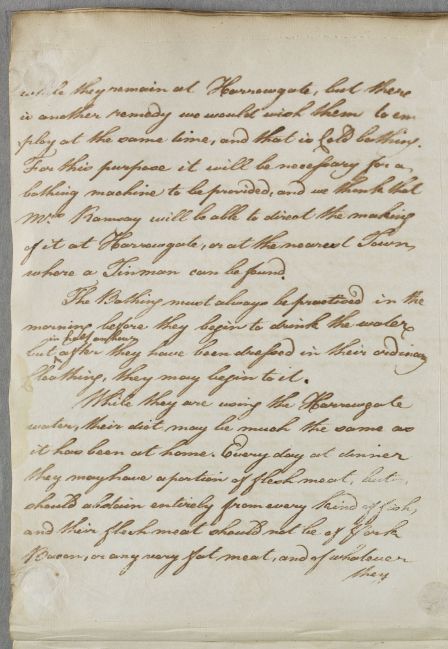 while they remain at Harrowgate, but there
is another remedy we would wish them to em
ploy at the same time, and that is Cold bathing.
For this purpose it will be necessary for a
bathing machine to be provided, and we think that
Mrs Ramsay will be able to direct the making
of it at Harrowgate, or at the nearest Town,
where a Tinman can be found.
The Bathing must always be practiced in the
morning before they begin to drink the water,
in half an hour
but after they have been dressed in their ordinary
Cloathing, they may begin to it.
While they are using the Harrowgate
water, their diet may be much the same as
it has been at home. Every day at dinner
they may have a portion of flesh meat, but
should abstain entirely from every kind of fish,
and their flesh meat should not be of Pork
Bacon, or any very fat meat, and of whatever
they